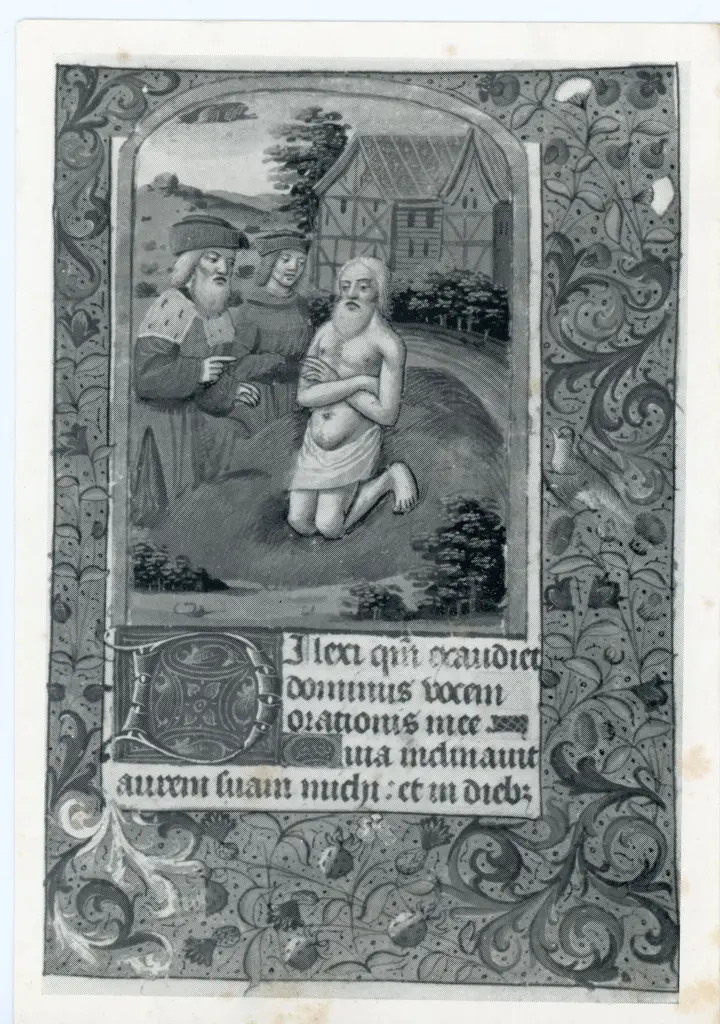 Dilexi qm̄ exaudiet
dominus vocem
orationis mee
Quia inclinauit
aurem suam michi : et in dieb;